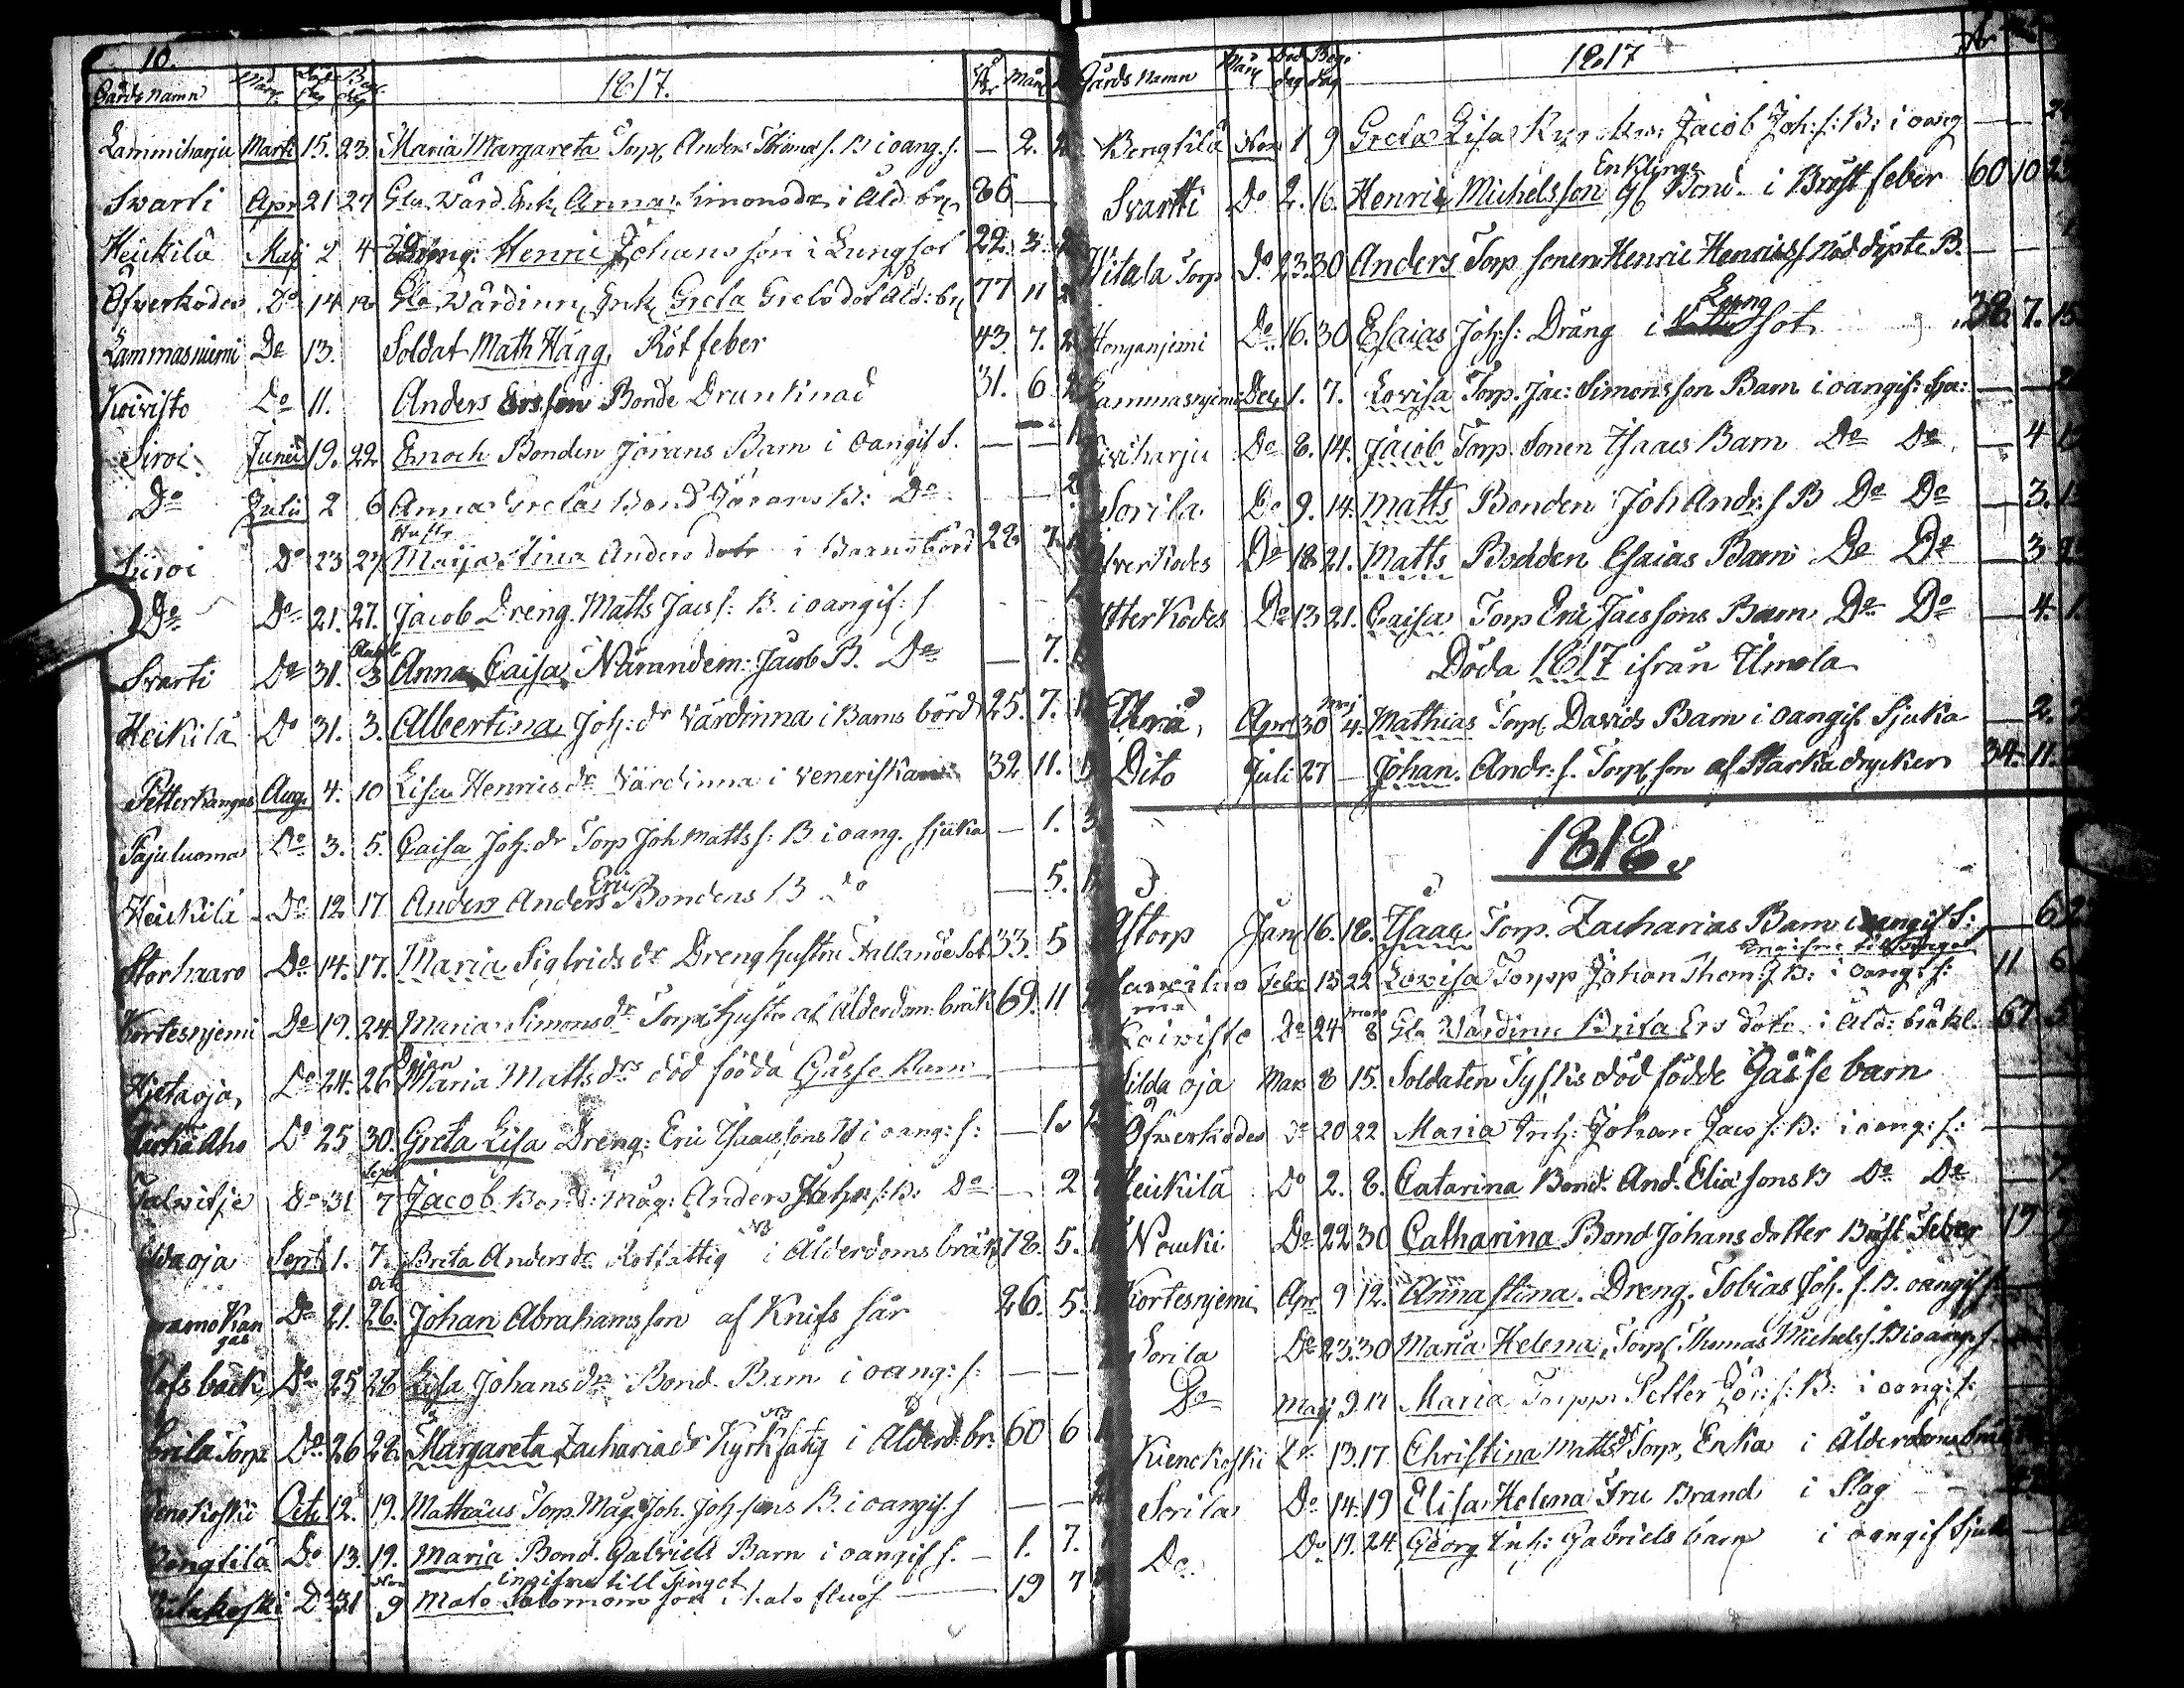 10.
Gårds namn Mån. Död dag Beg. dag 1817. År Mån
Lammiharju Mart. 15. 23. Maria Margareta Torp. Anders Thomas s. B i oang. s. — 2.
Svarti Apr 21 27 Gla Värd. Enk. Anna Simonsdr i Åld. br. 86 —
Heickilä Maj 2 4 Dräng: Henric Johansson i Lungsot 22. 3.
Öfverkodes Do 14 18 Gla Värdinn. Enk. Greta Gretsdot Åld: br. 77 11
Lammasniemi Do 13. Soldat Math Hägg, Rötfeber 43. 7.
Koivisto Do 11. Anders Ersson Bonde Drunknad 31. 6
Siroi Junii 19. 22 Enoch Bonden Jörans Barn i oangif S. — —
Do Julii 2 6 Anna Greta Bond Jörans B: Do —
Hustr
Siroi Do 23 27 Maija Stina Andersdotr i Barnsbörd 22 7.
Do Do 21. 27. Jacob Dreng. Matts Jacs s: B. i oangif: s
Svarti Do 31. 3 Anna Caisa Nämndem: Jacob B. Do — 7.
Heikilä Do 31. 3. Albertina Joh: dr Värdinna i Barns börd 25. 7.
Petterkangas Aug. 4. 10 Lisa Henricsdr Värdinna i Veneriska 32 11.
Pajuluoma Do 3. 5. Caisa Joh. dr Torp Joh Matts s: B i oang. sjuka — 1. 3
Eric
Heickilä Do 12 17 Anders Anders Bondens B Do — 5.
Storhaaro Do 14. 17. Maria Sigfridsdr Dreng hustru Fallande Sot 33. 5
Kortesnjemi Do 19. 24. Maria Simonsdr Torp. hustr af Ålderdom. bräk 69. 11
Pigan
Hietaoja, Do 24. 26 Maria Mattsdrs död födda Gåsse Barn —
Do 25 30. Greta Lisa Dreng: Eric Isaacssons B i oang: s: — 1.
Sept
Jalvitje Do 31 7 Jacob Bond: måg: Anders Johns s: B: Do — 2
Sept 1. 7. Brita Andersdr Rotfattig i Ålderdoms bräk 78. 5.
Oct
Do 21. 26. Johan Abrahamsson af Knifs sår 26. 5.
Hofs back Do 25 28 Lisa Johansdr Bond. Barn i oang: s: — —
Sorila Torp Do 26 28. Margareta Zachariadr Kyrkfatig i Ålderd. br: 60 6
Oct. 12. 19. Matthæus Torp. Måg. Joh. Joh. sons B. i oangif. s — —
Bengtilä Do 13. 19. Maria Bond. Gabriels Barn i oangif s. — 1. 7.
Nov ingifne till Tinget
Do 31 9 Mats Salomonsson i hals fluss — 19 7
Gårds namn Mån Död dag Beg: dag 1817 År
Bengtilä Nov 1 9 Greta Lisa Jacob Joh: s: B: i oang —
Enkling
Svartti Do 2. 16. Henric Michelsson Gl Bond. i Bröst feber 60 10
Vitala Torp Do 23. 30 Anders Torp sonen Henric Henricss Nöd döpte B. —
Lung
Honganjemi Do 16. 30 Esaias Joh: s: Dräng i sot 38. 7. 15
Lammasnjemi Dec. 1. 7. Lovisa Torp. Jac: Simonsson Barn i oangif: sjca: —
Kiviharju Do 8. 14. Jacob Torp. Sonen Isaacs Barn Do Do — 4
Sorila Do 9. 14. Matts Bonden Joh Andr: s B Do Do — 3.
Öfverkodes Do 18 21. Matts Bodden Esaias Barn Do Do — 3
Ytterkodes Do 13 21. Caisa Torp Eric Jacssons Barn Do Do — 4.
Döda 1817 ifrån Umola
Maj
Apr 30 4. Mathias Torp. Davids Barn i oangif. Sjuka — 2.
Dito Juli 27 — Johan. Andr: s. Torp. son af Starka drycker 34. 11.
1818.
Ystorp Jan 16. 18. Isaac Torp. Zacharias Barn i oangif S: — 6
Febr 15 22 Lovisa Torpp Johan Thom: s B: i oang: s: 11 6
Mars
Koivisto Do 24 8 Gla Värdinn Brita Ers dotr i Åld: bräkl. 67 5
Silda oja Mars 8 15. Soldaten Tysks död födde Gåsse barn
Öfverkodes Do 20 22 Maria Inh: Johan Jacs s: B: i oang: s:
Heickilä Do 2. 8. Catarina Bond. And. Elia sons B Do Do
Do 22 30 Catharina Bond Johans dotter Bröst Feber 19
Kortesnjemi Apr. 9 12. Anna Stina. Dreng. Tobias Joh. s. B. oangif s:
Sorila Do 23. 30 Maria Helena, Torp. Thomas Michels s. B i oang. s
Do Maj 9. 17 Maria Torpp Petter Jör: s: B: i oang: s:
Kienokoski Do 13. 17. Christina Mattsdr Torp. Enka i Ålderdoms bräk
Sorila Do 14. 19 Elisa Helena Fru Brand i Slag —
Do Do 19. 24 Georg Inh: Gabriels barn i oangif Sjuk —